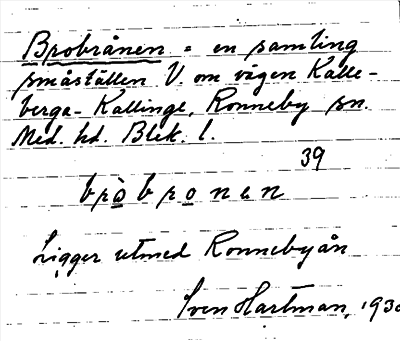 Brobrånen = en samling
småställen V. om vägen Kalle-
berga - Kallinge, Ronneby sn.
Med. hd. Blek. l.
39
bròbronen
Ligger utmed Ronnebyån
Sven Hartman, 193